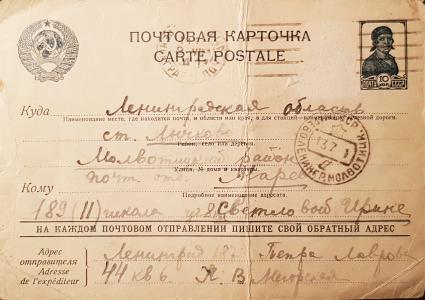 ПОЧТОВАЯ КАРТОЧКА
CARTE POSTALE
10
Куда Ленинградская область
Наименование места, где находится почта, и области или края, а для станций наименование железной дороги.
ст. Лычково
Район, село или деревня.
Молвотицкий район
Улица, № дома и квартиры.
почт. отд. Марево
Подробное наименование адресата.
Кому
189 (II) школа Светловой Ирине
НА КАЖДОМ ПОЧТОВОМ ОТПРАВЛЕНИИ ПИШИТЕ СВОЙ ОБРАТНЫЙ АДРЕС
Адрес отправителя
Adresse de l'expéditeur
Ленинград 187 Петра Лаврова
44 кв 6